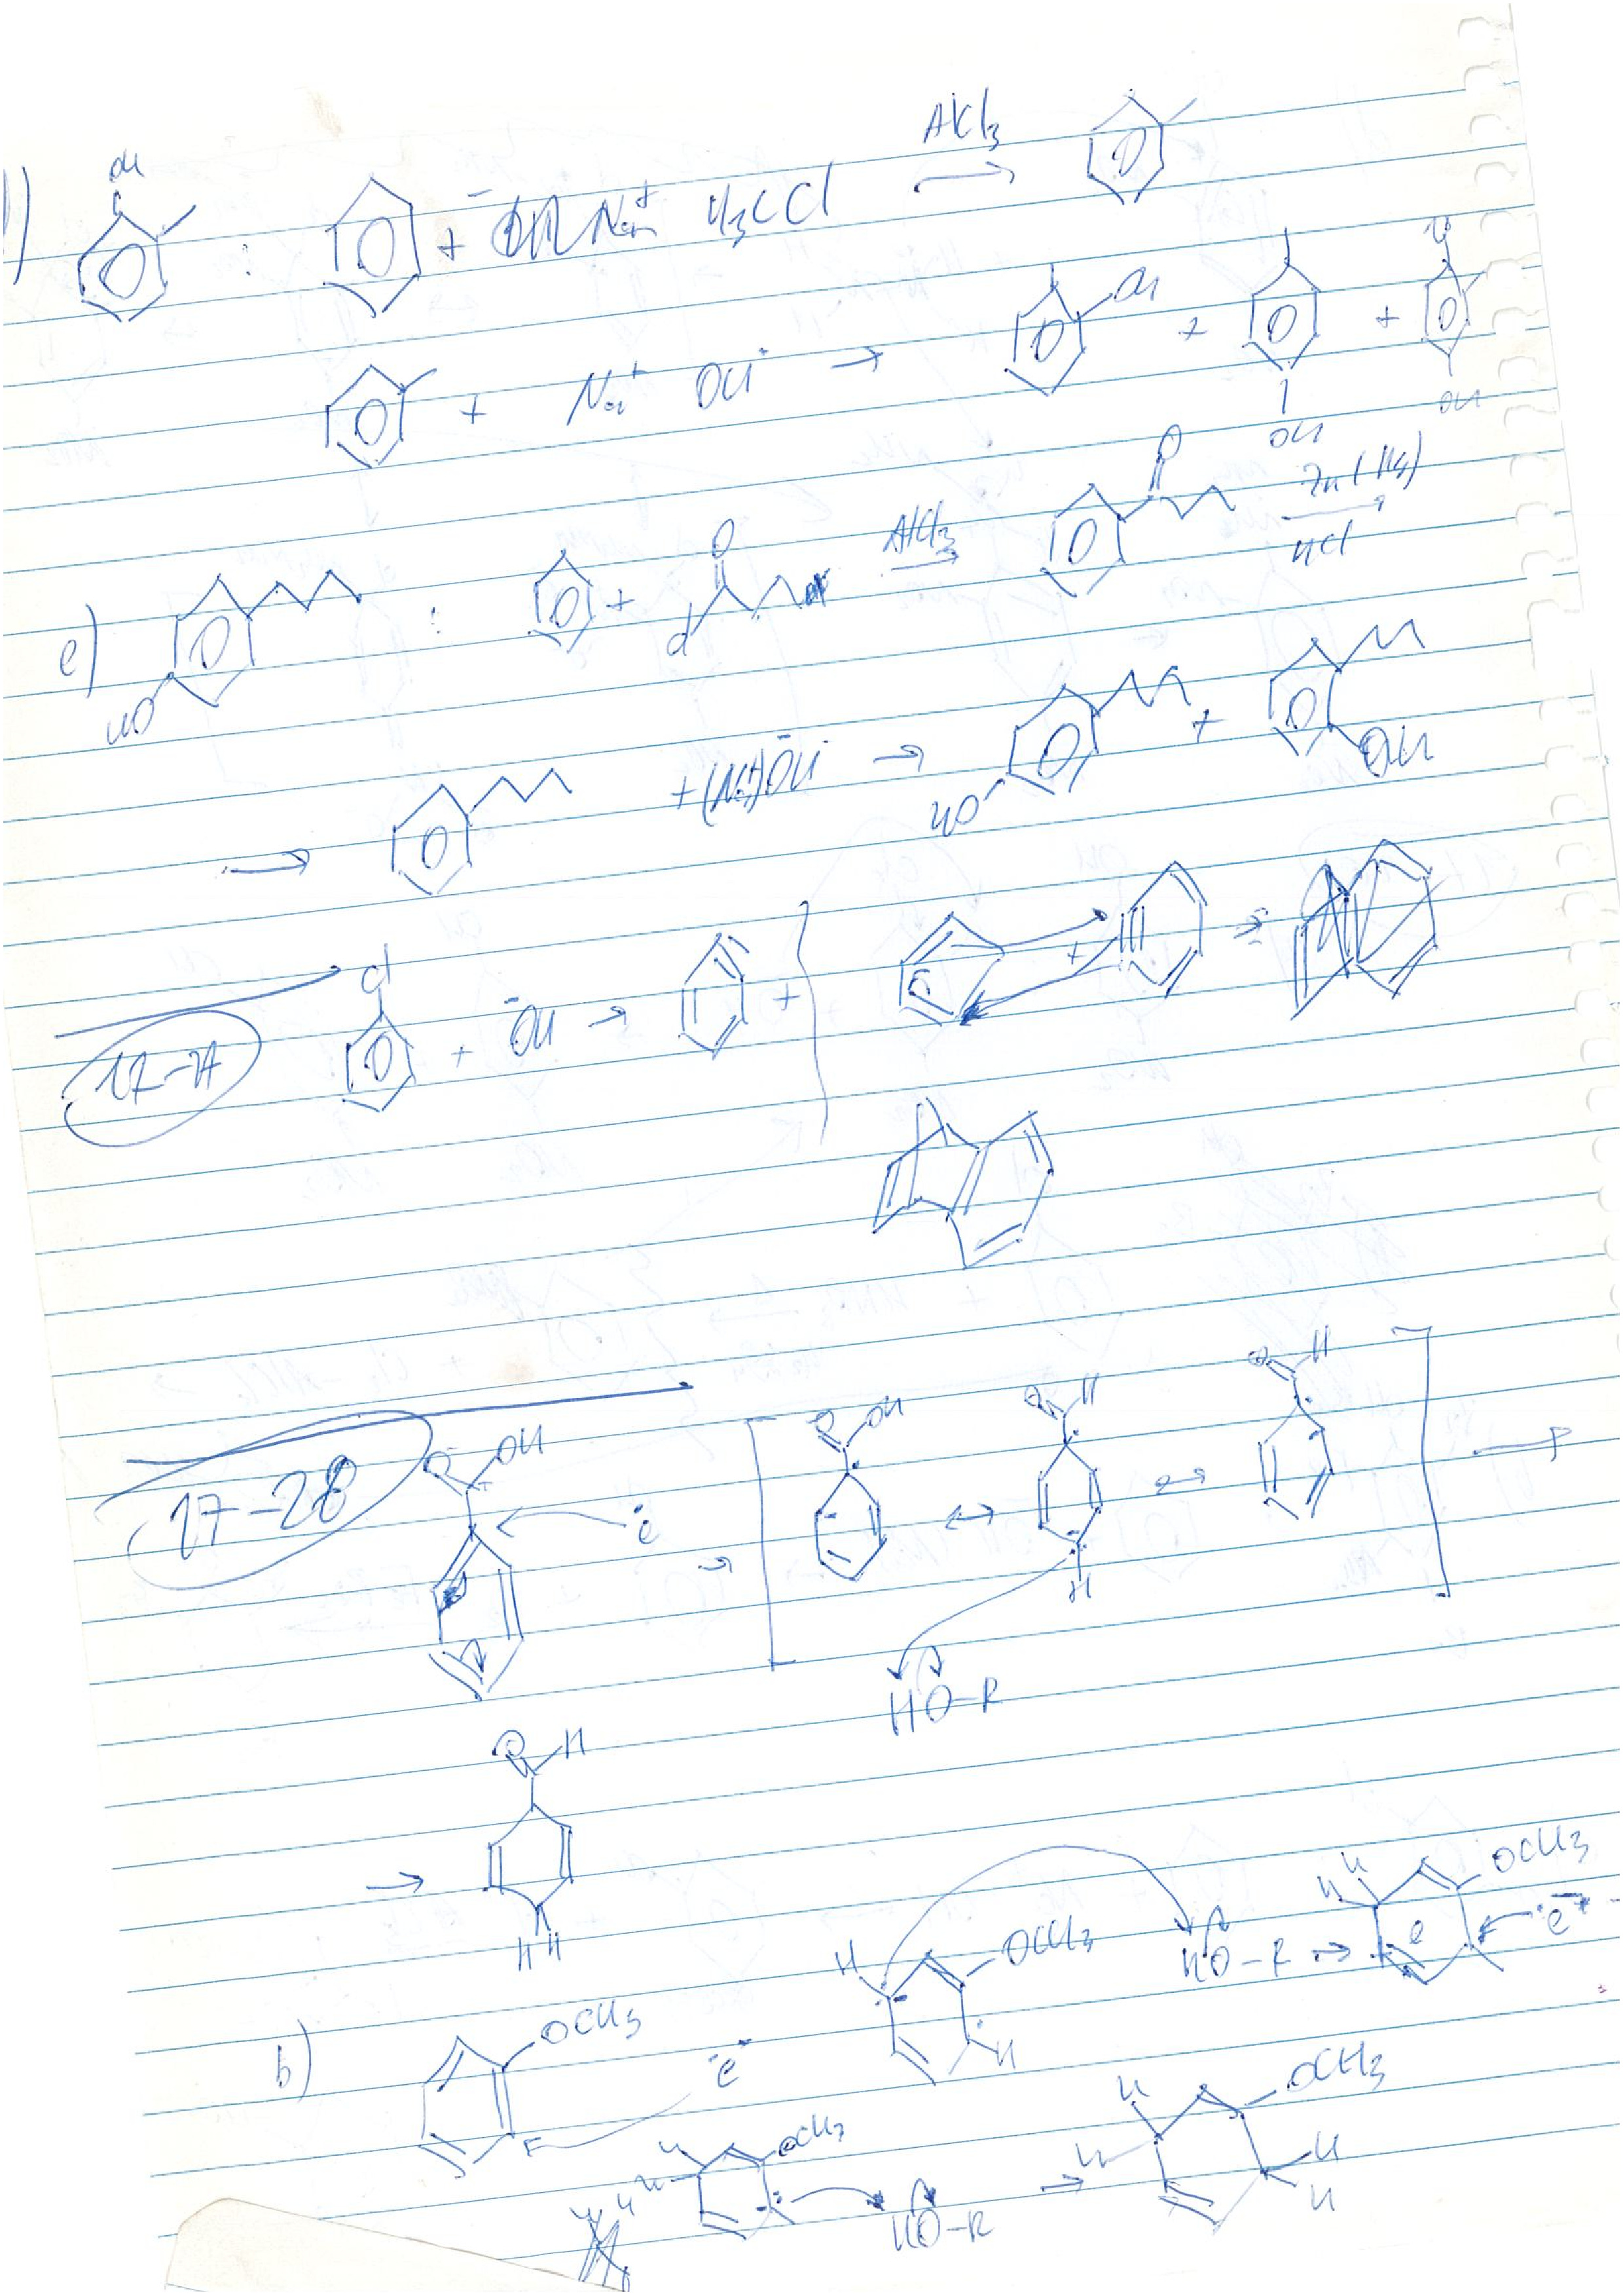 OH
d) : + Na+ H3CCl AlCl3
+ Na+ OH- → OH + OH + OH
e) HO : + Cl O AlCl3 O Zn(Hg) HCl
→ +(Na+)OH- → HO + OH
17-27 Cl + -OH → + + →
17-28 O OH e → O OH ↔ O H H ↔ O H →
HO-R
→ O H H H
b) OCH3 e- H OCH3 H HO-R → H H OCH3 e-
H H OCH3 HO-R → H H OCH3 H H